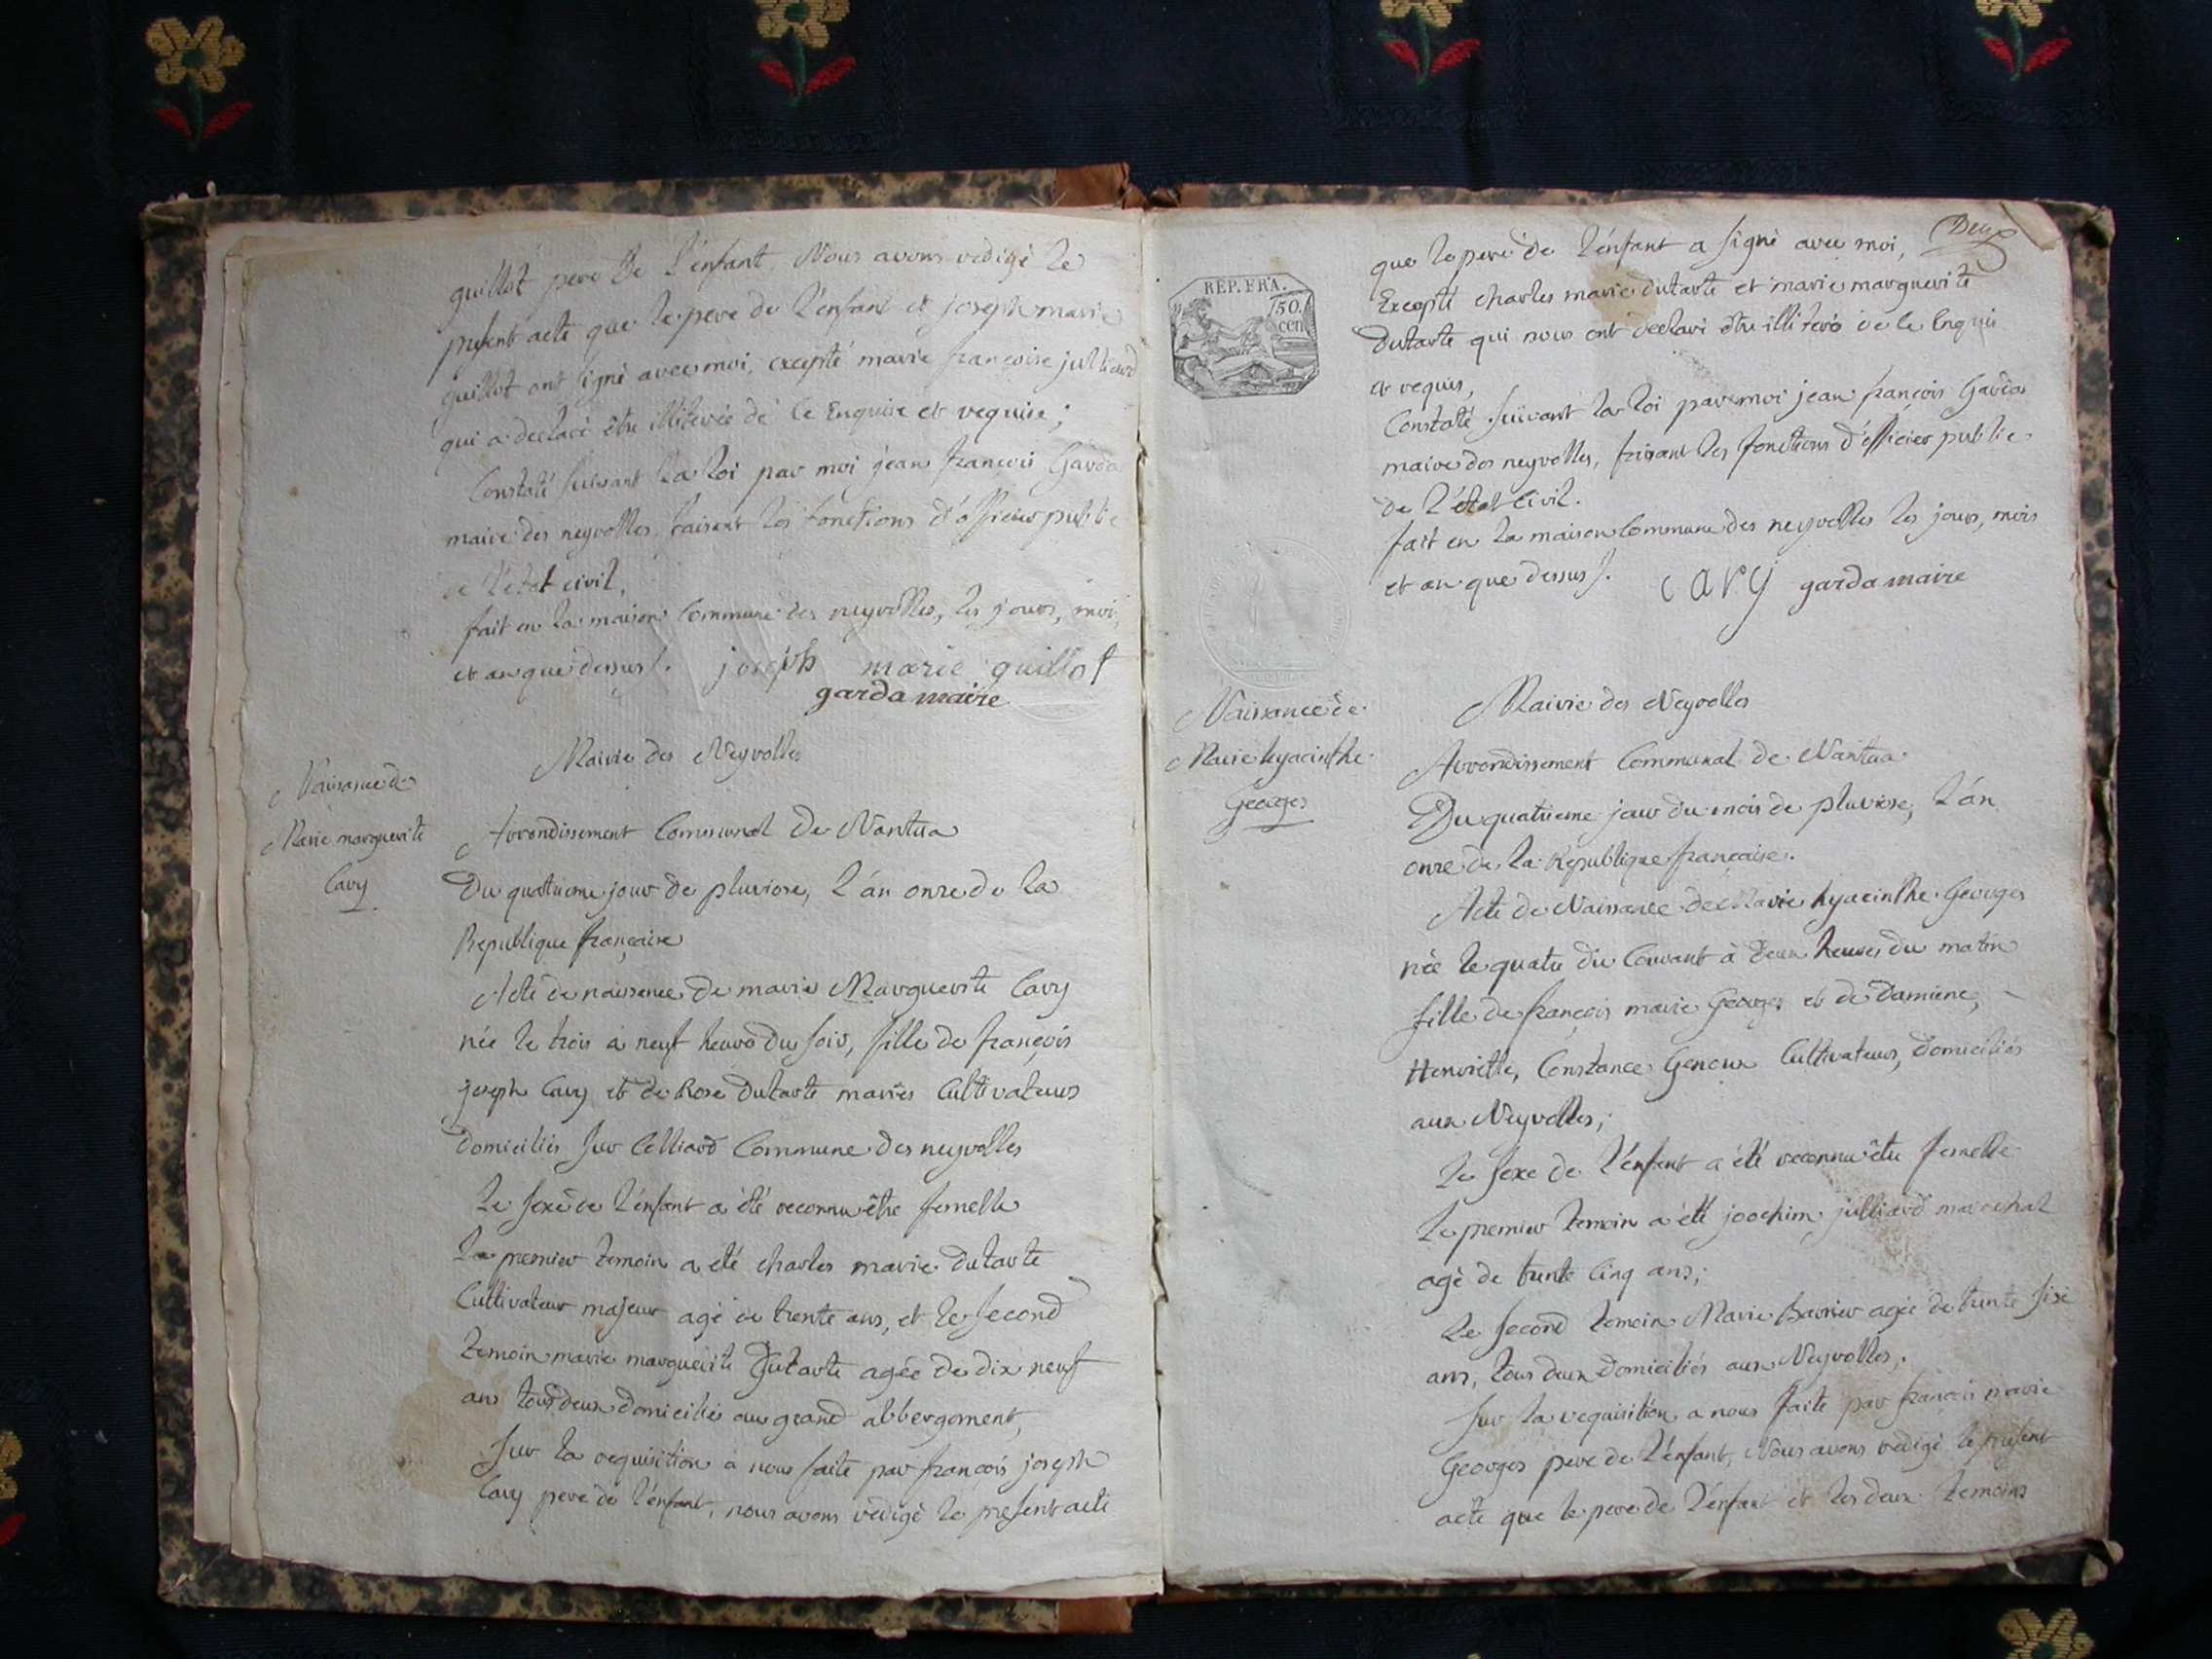 guillot pere De l'enfant Nous avons redigé le
present acte que le pere de l'enfant et joseph marie
guillot ont signé avec moi, excepté marie françoise julliard
qui a declaré être illiterée de ce Enquise et requise;
Constaté suivant la loi par moi jean françois Garda
maire des neyrolles faisant les fonctions d'officier public
de l'etat civil,
fait en la maison Commune des neyrolles, les jours, mois,
et an que dessus /. joseph marie guillot
garda maire
Naissance de
Marie marguerite
Cavy
Mairie des Neyrolles
Arrondissement Communal De Nantua
Du quatrieme jour de pluviose, l'an onze de la
Republique française
Acte de naissance de marie Marguerite Cavy
née le trois a neuf heures du soir, fille de françois
joseph Cavy et de Rose Dutarte mariés Cultivateurs
domiciliés sur Colliard Commune des neyrolles
Le sexe de l'enfant a été reconnu être femelle
Le premier temoin a été charles marie Dutarte
Cultivateur majeur agé de trente ans, et le second
temoin marie marguerite Dutarte agée de dix neuf
ans tous deux domicilié au grand abbergement,
Sur la requisition a nous faite par françois joseph
Cavy pere de l'enfant, nous avons redigé le present acte
Deux
REP. FRA.
50.
cen
que le pere de l'enfant a signé avec moi,
Excepté charles marie dutarte et marie marguerite
Dutarte qui nous ont declaré être illiterés de ce Enquis
et requis,
Constaté suivant la loi par moi jean françois Garda
maire des neyrolles, faisant les fonctions d'officier public
de l'état Civil.
fait en la maison Commune des neyrolles les jours, mois
et an que dessus /. cavy garda maire
Naissance de
Marie hyacinthe
Georges
Mairie des Neyrolles
Arrondissement Communal de Nantua
Du quatrieme jour du mois de pluviose, l'an
onze de la Republique française.
Acte de Naissance de Marie hyacinthe Georges
née le quatre du Courant à deux heures du matin
fille de françois marie Georges et de Damiene,
Henriette, Constance Genoux Cultivateurs, domiciliés
aux Neyrolles;
Le sexe de l'enfant a été reconnu être femelle
Le premier temoin a été joachim julliard marechal
agé de trente Cinq ans;
Le second temoin Marie Barrier agée de trente sixe
ans, tous deux domiciliés aux Neyrolles,
Sur la requisition a nous faite par françois marie
Georges pere de l'enfant, Nous avons redigé le present
acte que le pere de l'enfant et les deux temoins